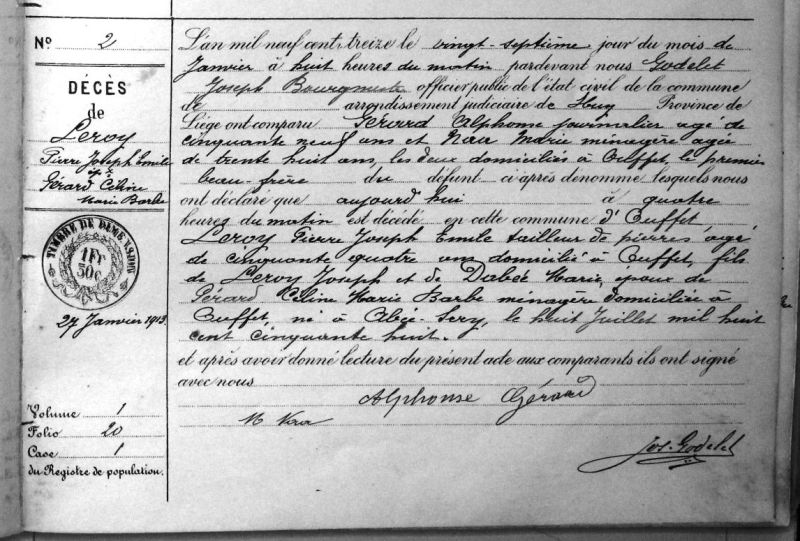 No 2
DÉCÈS
de
Leroy
Pierre Joseph Emile
Gérard Céline
Marie Barbe
TIMBRE DE DIMENSION
1 Fr
50 c
27 Janvier 1913.
Volume 1
Folio 20
Case 1
du Registre de population.
L'an mil neuf cent treize le vingt-septième jour du mois de
Janvier à huit heures du matin pardevant nous Godelet
Joseph Bourgmestre officier public de l'état civil de la commune
de arrondissement judiciaire de Huy Province de
Liège ont comparu Gérard Alphonse journalier agé de
cinquante neuf ans et Naa Marie ménagère agée
de trente huit ans, les deux domiciliés à Ouffet, le premier
beau-frère du défunt ci après dénommé lesquels nous
ont déclaré que aujourd'hui à quatre
heures du matin est décédé en cette commune d'Ouffet,
Leroy Pierre Joseph Emile tailleur de pierres, agé
de cinquante quatre ans domicilié à Ouffet, fils
de Leroy Joseph et de Dabée Marie, époux de
Gérard Céline Marie Barbe ménagère domiciliée à
Ouffet, né à Abée-Scry, le huit Juillet mil huit
cent cinquante huit.
et après avoir donné lecture du présent acte aux comparants ils ont signé
avec nous
Alphonse Gérard
Jos. Godelet